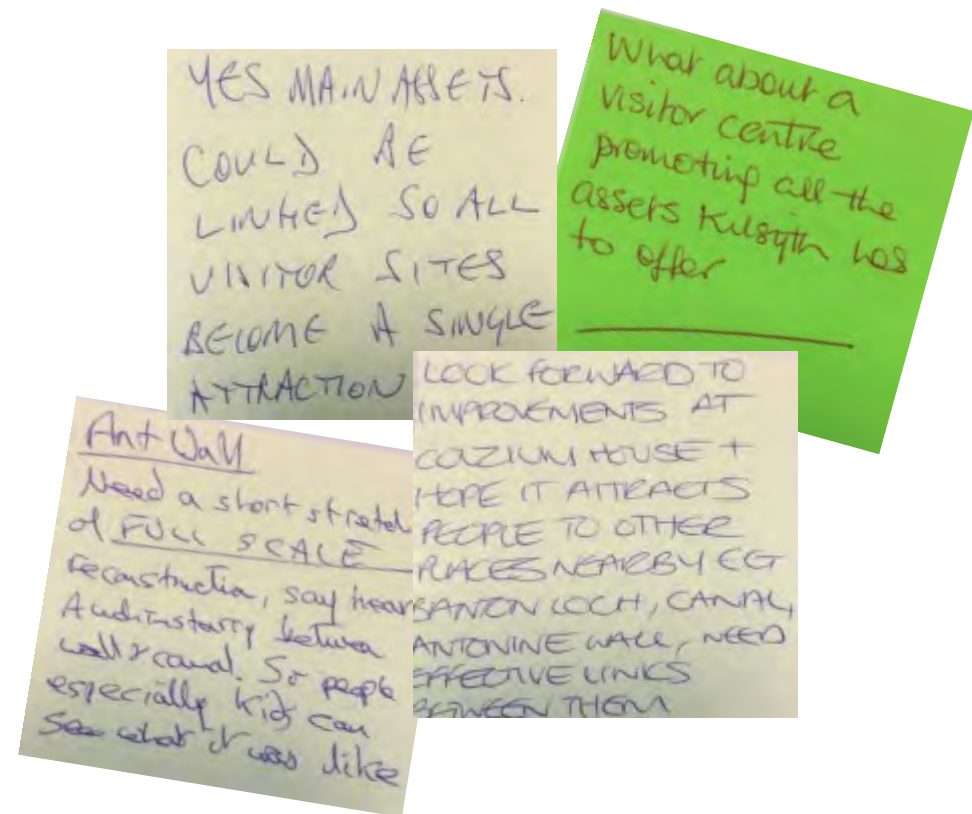 YES MAIN ASSETS.
COULD BE
LINKED SO ALL
VISITOR SITES
BECOME A SINGLE
ATTRACTION
What about a
visitor centre
promoting all the
assets Kilsyth has
to offer
Ant Wall
Need a short stretch
of FULL SCALE
reconstruction, say near
Auchinstarry between
wall & canal. So people
especially kids can
see what it was like
LOOK FORWARD TO
IMPROVEMENTS AT
COLZIUM HOUSE +
HOPE IT ATTRACTS
PEOPLE TO OTHER
PLACES NEARBY EG
BANTON LOCH, CANAL,
ANTONINE WALL, NEED
EFFECTIVE LINKS
BETWEEN THEM